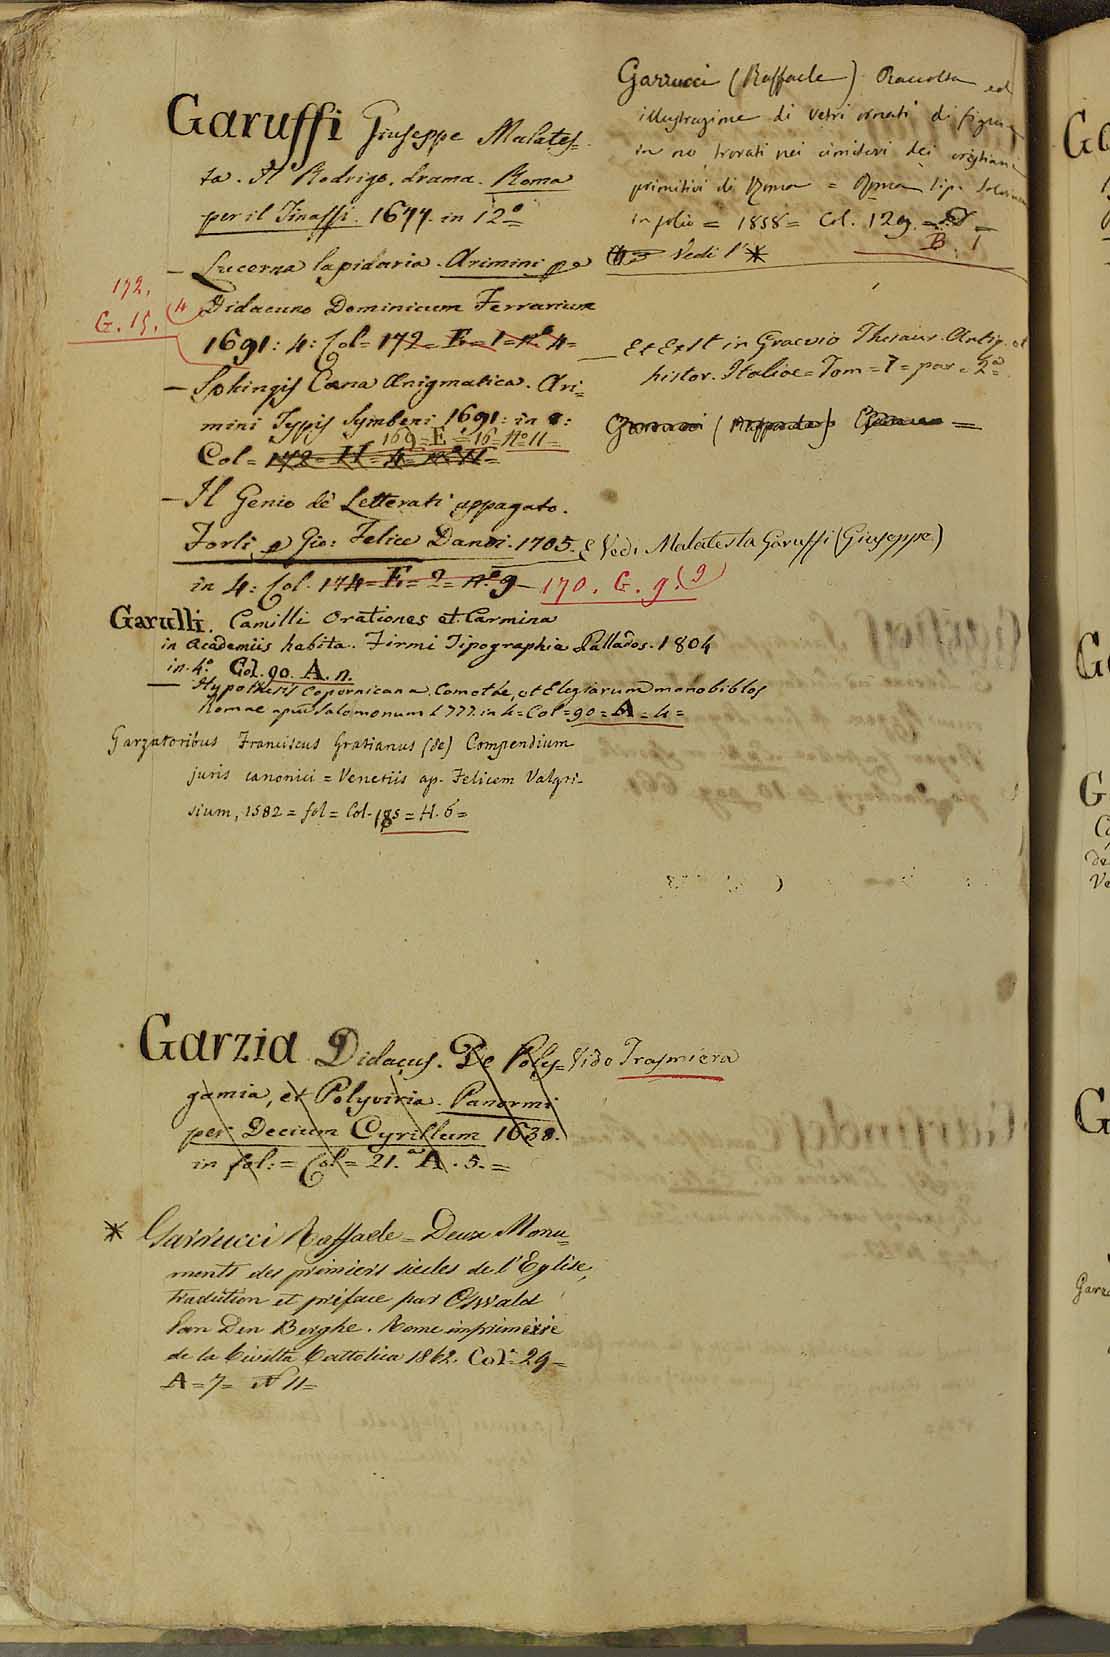 Garuffi Giuseppe Malates=
ta. Il Rodrigo, drama. Roma
per il Tinassi. 1677. in 12°
— Lucerna lapidaria. Arimini per
Didacum Dominicum Ferrarium
1691: 4: Col= 172= E= 1= n° 4=
172.
G. 15. (4
— Sphingis Cæna Ænigmatica. Ari=
mini Typis Symbeni 1691: in 8:
169= E = 16= N° 11=
Col= 172= H= 4= n° 11=
— Il Genio dè Letterati appagato.
Forlì p Gio: Felice Dandi. 1705.
in 4: Col. 174= E= 2= n° 9 — 170. G. 9. (9
Garulli. Camilli Orationes et Carmina
in Academiis habita. Firmi Tipographia Pallados. 1804
in. 4° Col. 90. A. n.
— Hypothesis Copernicana Comothe, et Elegiarum monobiblos
Romae apud Salomonum 1777. in 4= Col= 90= A= 4=
Garzatoribus Franciscus Gratianus (de) Compendium
juris canonici = Venetiis ap. Felicem Valgri-
sium, 1582 = fol = Col. 185 = H. 6=
Garzia Didacus. De Poly=
gamia, et Polyviria. Panormi
per Decium Cyrillum 1638.
in fol: = Col= 21. A. 5. =
Vide Trasmiera
* Garrucci Raffaele = Deux Monu=
ments des primiers siecles de l'Eglise,
traduction et préface par Oswald
Van Den Berghe. Rome imprimerie
de la Civiltà Cattolica 1862. Col. 29=
A= 7= N 11=
Garrucci (Raffaele) Raccolta ed
illustrazione di vetri ornati di figure
in oro trovati nei cimiteri dei cristiani
primitivi di Roma = Roma tip. Salviucci
in folio = 1858= Col. 129.
B. 1
Vedi l'*
— Et Extt in Graevio Thesaur. Antiq. et
histor. Italiae= Tom= 7= par= 2ª=
Garrucci (Raffaele)
E Vedi Malatesta Garuffi (Giuseppe)